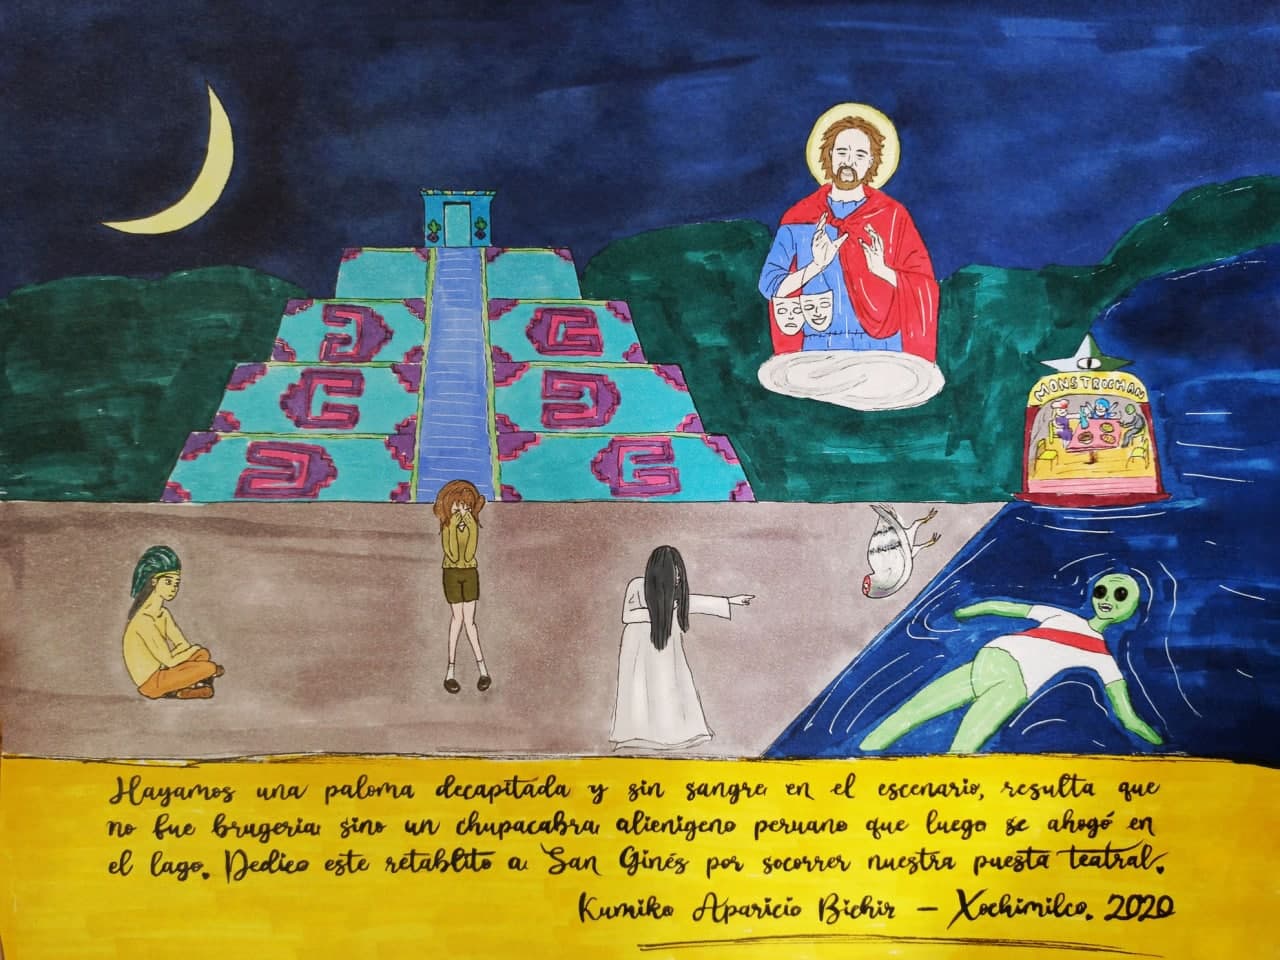 MONSTROCHAN
Hayamos una paloma decapitada y sin sangre en el escenario, resulta que
no fue brugeria sino un chupacabra alienigeno peruano que luego se ahogó en
el lago. Dedico este retablito a San Ginés por socorrer nuestra puesta teatral.
Kumiko Aparicio Bichir – Xochimilco, 2020